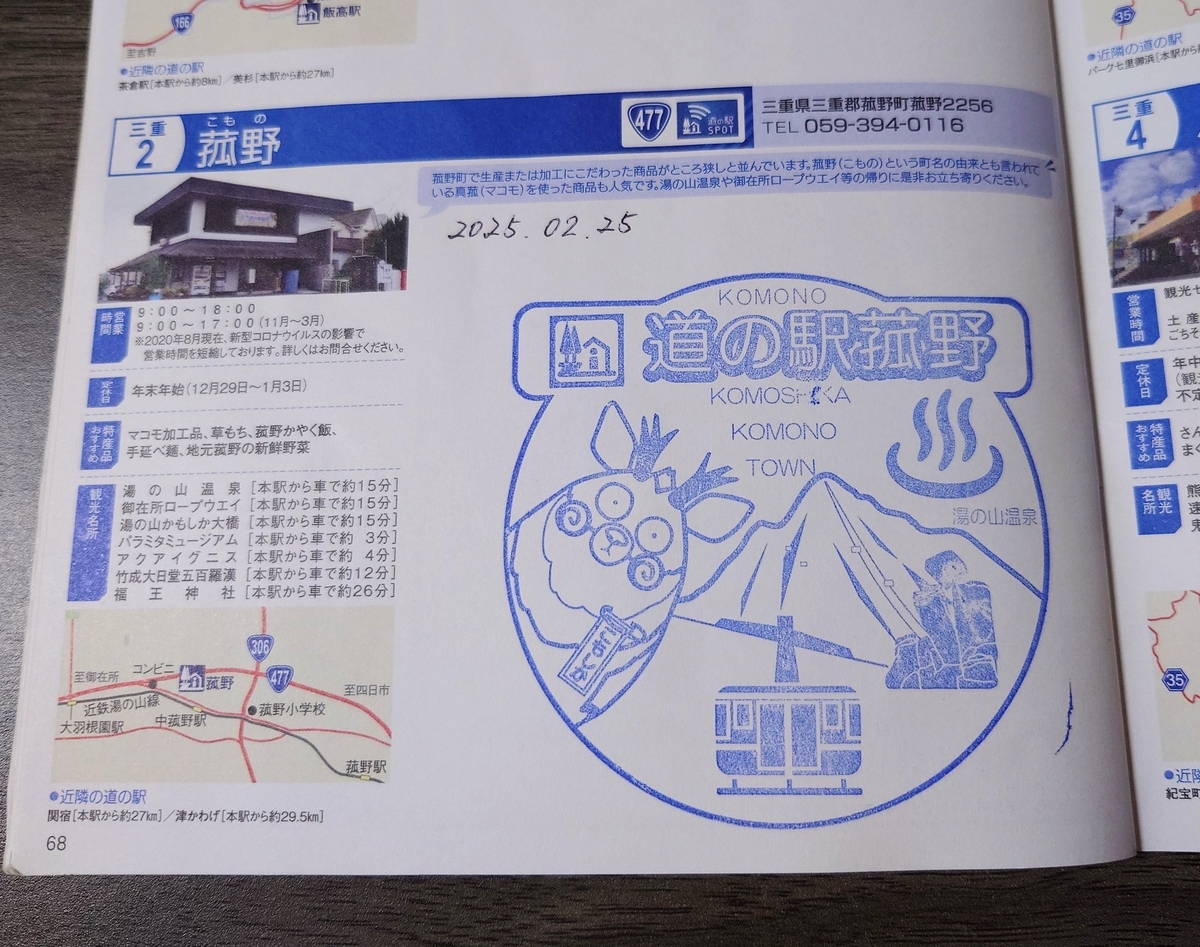 飯高駅
166
至吉野
●近隣の道の駅
茶倉駅[本駅から約8km]/美杉[本駅から約27km]
三重
2
こもの
菰野
477
道の駅
SPOT
三重県三重郡菰野町菰野2256
TEL 059-394-0116
菰野町で生産または加工にこだわった商品がところ狭しと並んでいます。菰野(こもの)という町名の由来とも言われて
いる真菰(マコモ)を使った商品も人気です。湯の山温泉や御在所ロープウエイ等の帰りに是非お立ち寄りください。
2025.02.25
営業時間
9:00~18:00
9:00~17:00(11月~3月)
※2020年8月現在、新型コロナウイルスの影響で
営業時間を短縮しております。詳しくはお問合せください。
定休日
年末年始(12月29日~1月3日)
特産品
おすすめ
マコモ加工品、草もち、菰野かやく飯、
手延べ麺、地元菰野の新鮮野菜
観光名所
湯の山温泉 [本駅から車で約15分]
御在所ロープウエイ [本駅から車で約15分]
湯の山かもしか大橋 [本駅から車で約15分]
パラミタミュージアム [本駅から車で約 3分]
アクアイグニス [本駅から車で約 4分]
竹成大日堂五百羅漢 [本駅から車で約12分]
福王神社 [本駅から車で約26分]
306
477
至御在所
コンビニ
菰野
至四日市
近鉄湯の山線
大羽根園駅
中菰野駅
菰野小学校
菰野駅
●近隣の道の駅
関宿[本駅から約27km]/津かわげ[本駅から約29.5km]
68
KOMONO
道の駅菰野
KOMOSHIKA
KOMONO
TOWN
湯の山温泉
こもしか
35
●近隣の道の駅
パーク七里御浜[本駅から
三重
4
営業時間
観光
土産
ごちそ
定休日
年中
(観
不定
特産品
おすすめ
さん
まぐ
観光名所
熊
速
鬼
35
●近隣
紀宝町